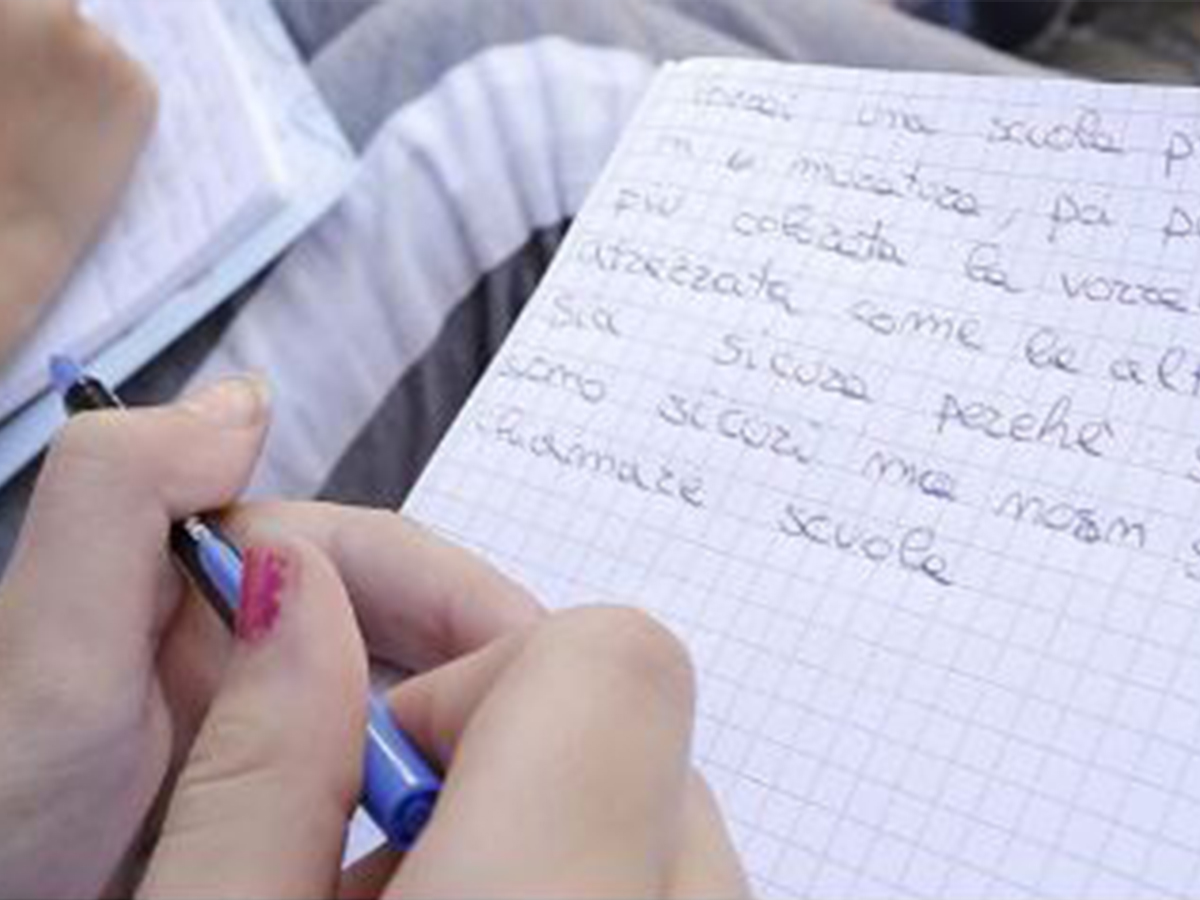 una scuola
muratura, poi
più colorata la vorre
atrezzata come le alt
sia sicura perché
sono sicuri ma non
chiamare scuola